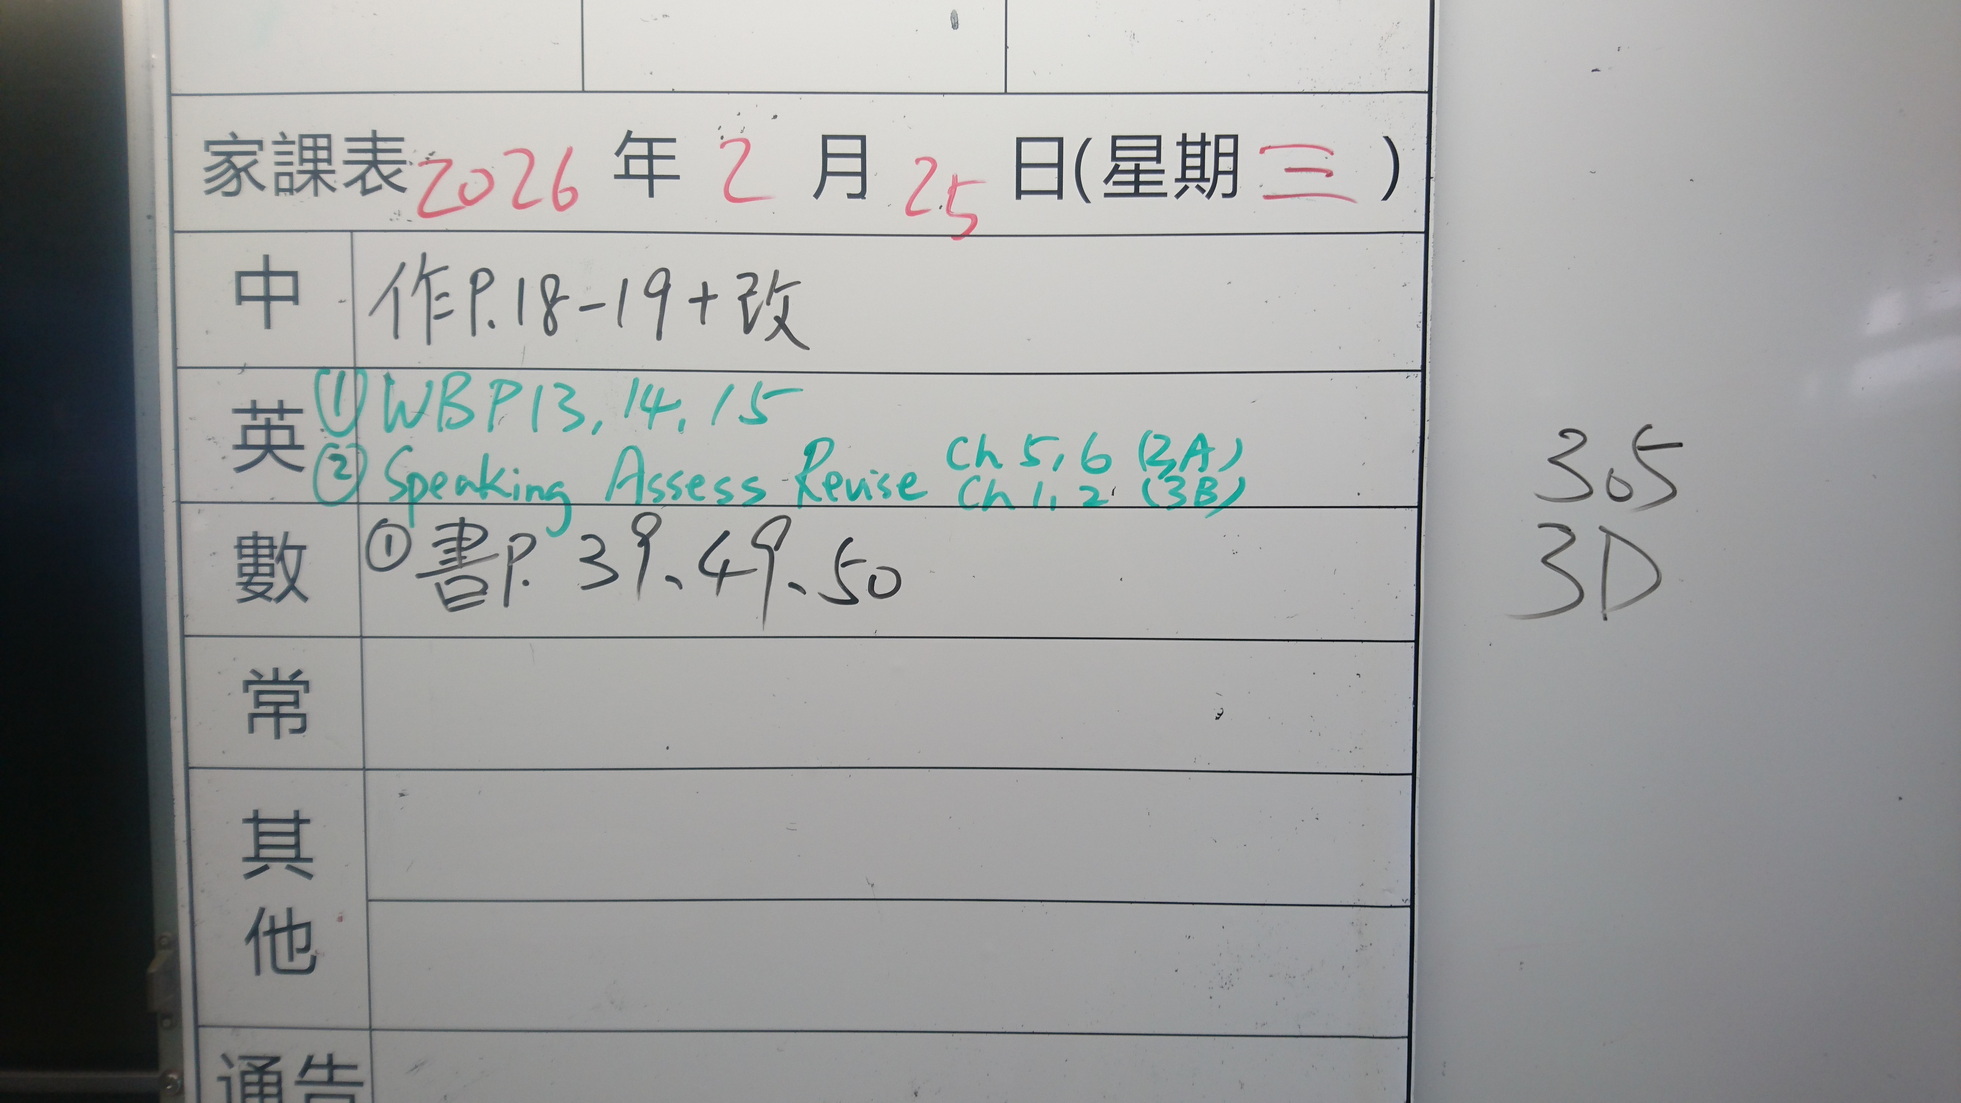 家課表 2026 年 2 月 25 日(星期 三 )
中 作P.18-19+改
英 ① WB P13, 14, 15
② Speaking Assess Revise Ch 5, 6 (3A)
Ch 1, 2 (3B)
數 ① 書P. 39、49、50
常
其他
通告
305
3D